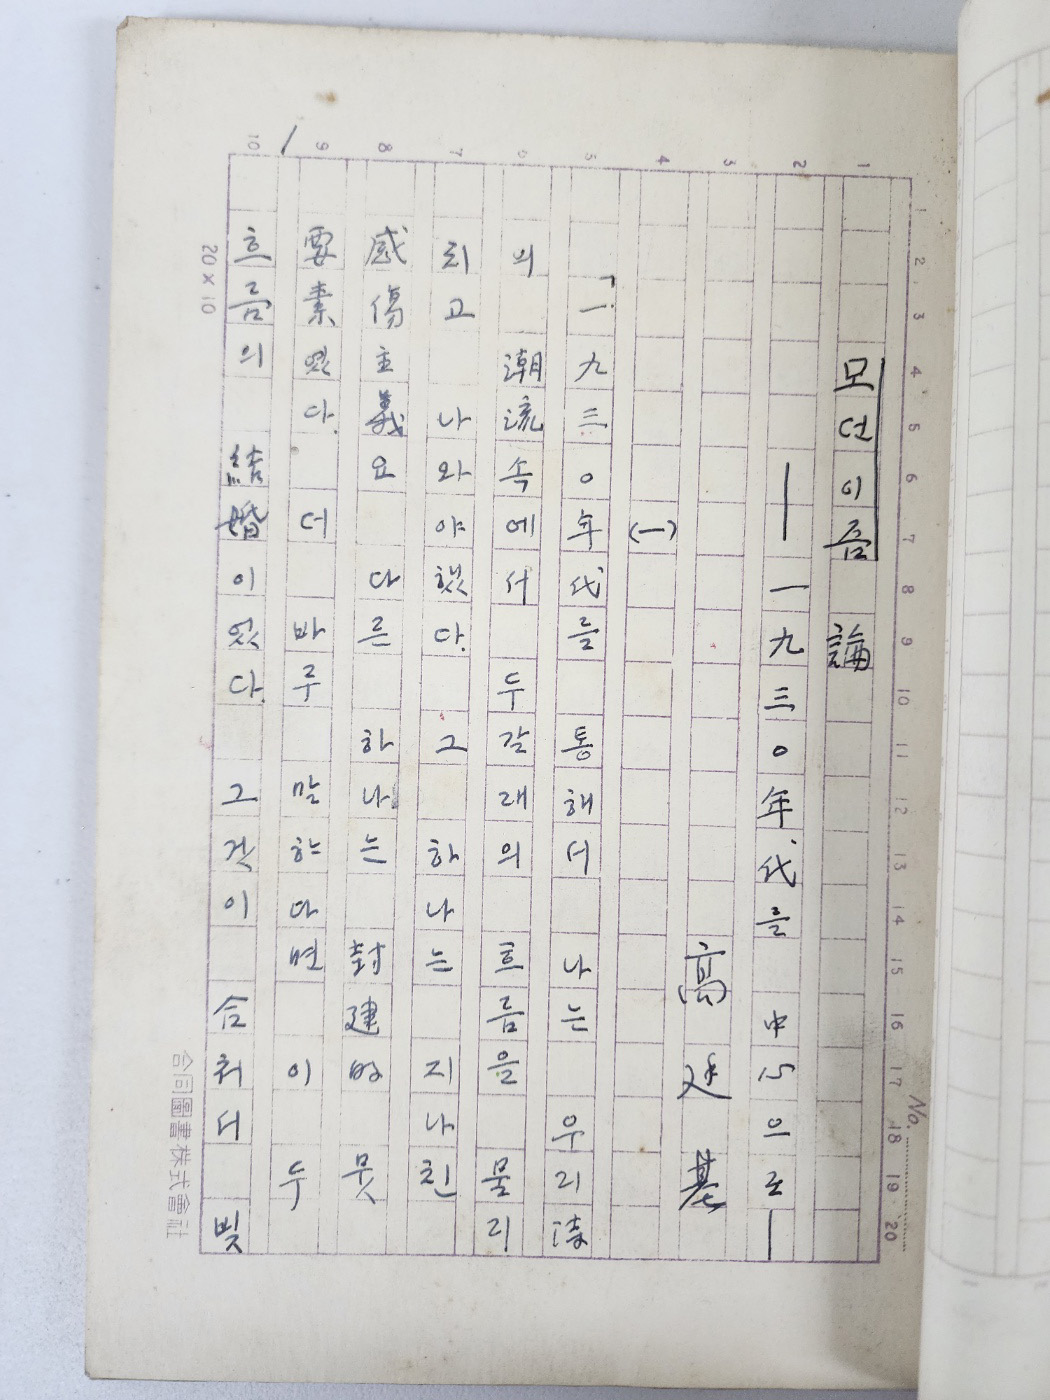 모던이즘 論
── 一九三〇年代를 中心으로 ─
高 廷 基
(一)
「一九三〇年代를 통해서 나는 우리 詩
의 潮流속에서 두 갈래의 흐름을 물리
치고 나와야했다. 그 하나는 지나친
感傷主義요 다른 하나는 封建的
要素였다. 더 바루 말한다면 이 두
흐름의 結婚이었다. 그것이 合처서 빚
1 2 3 4 5 6 7 8 9 10
1 2 3 4 5 6 7 8 9 10 11 12 13 14 15 16 17 18 19 20
No.
20×10
合同圖書株式會社